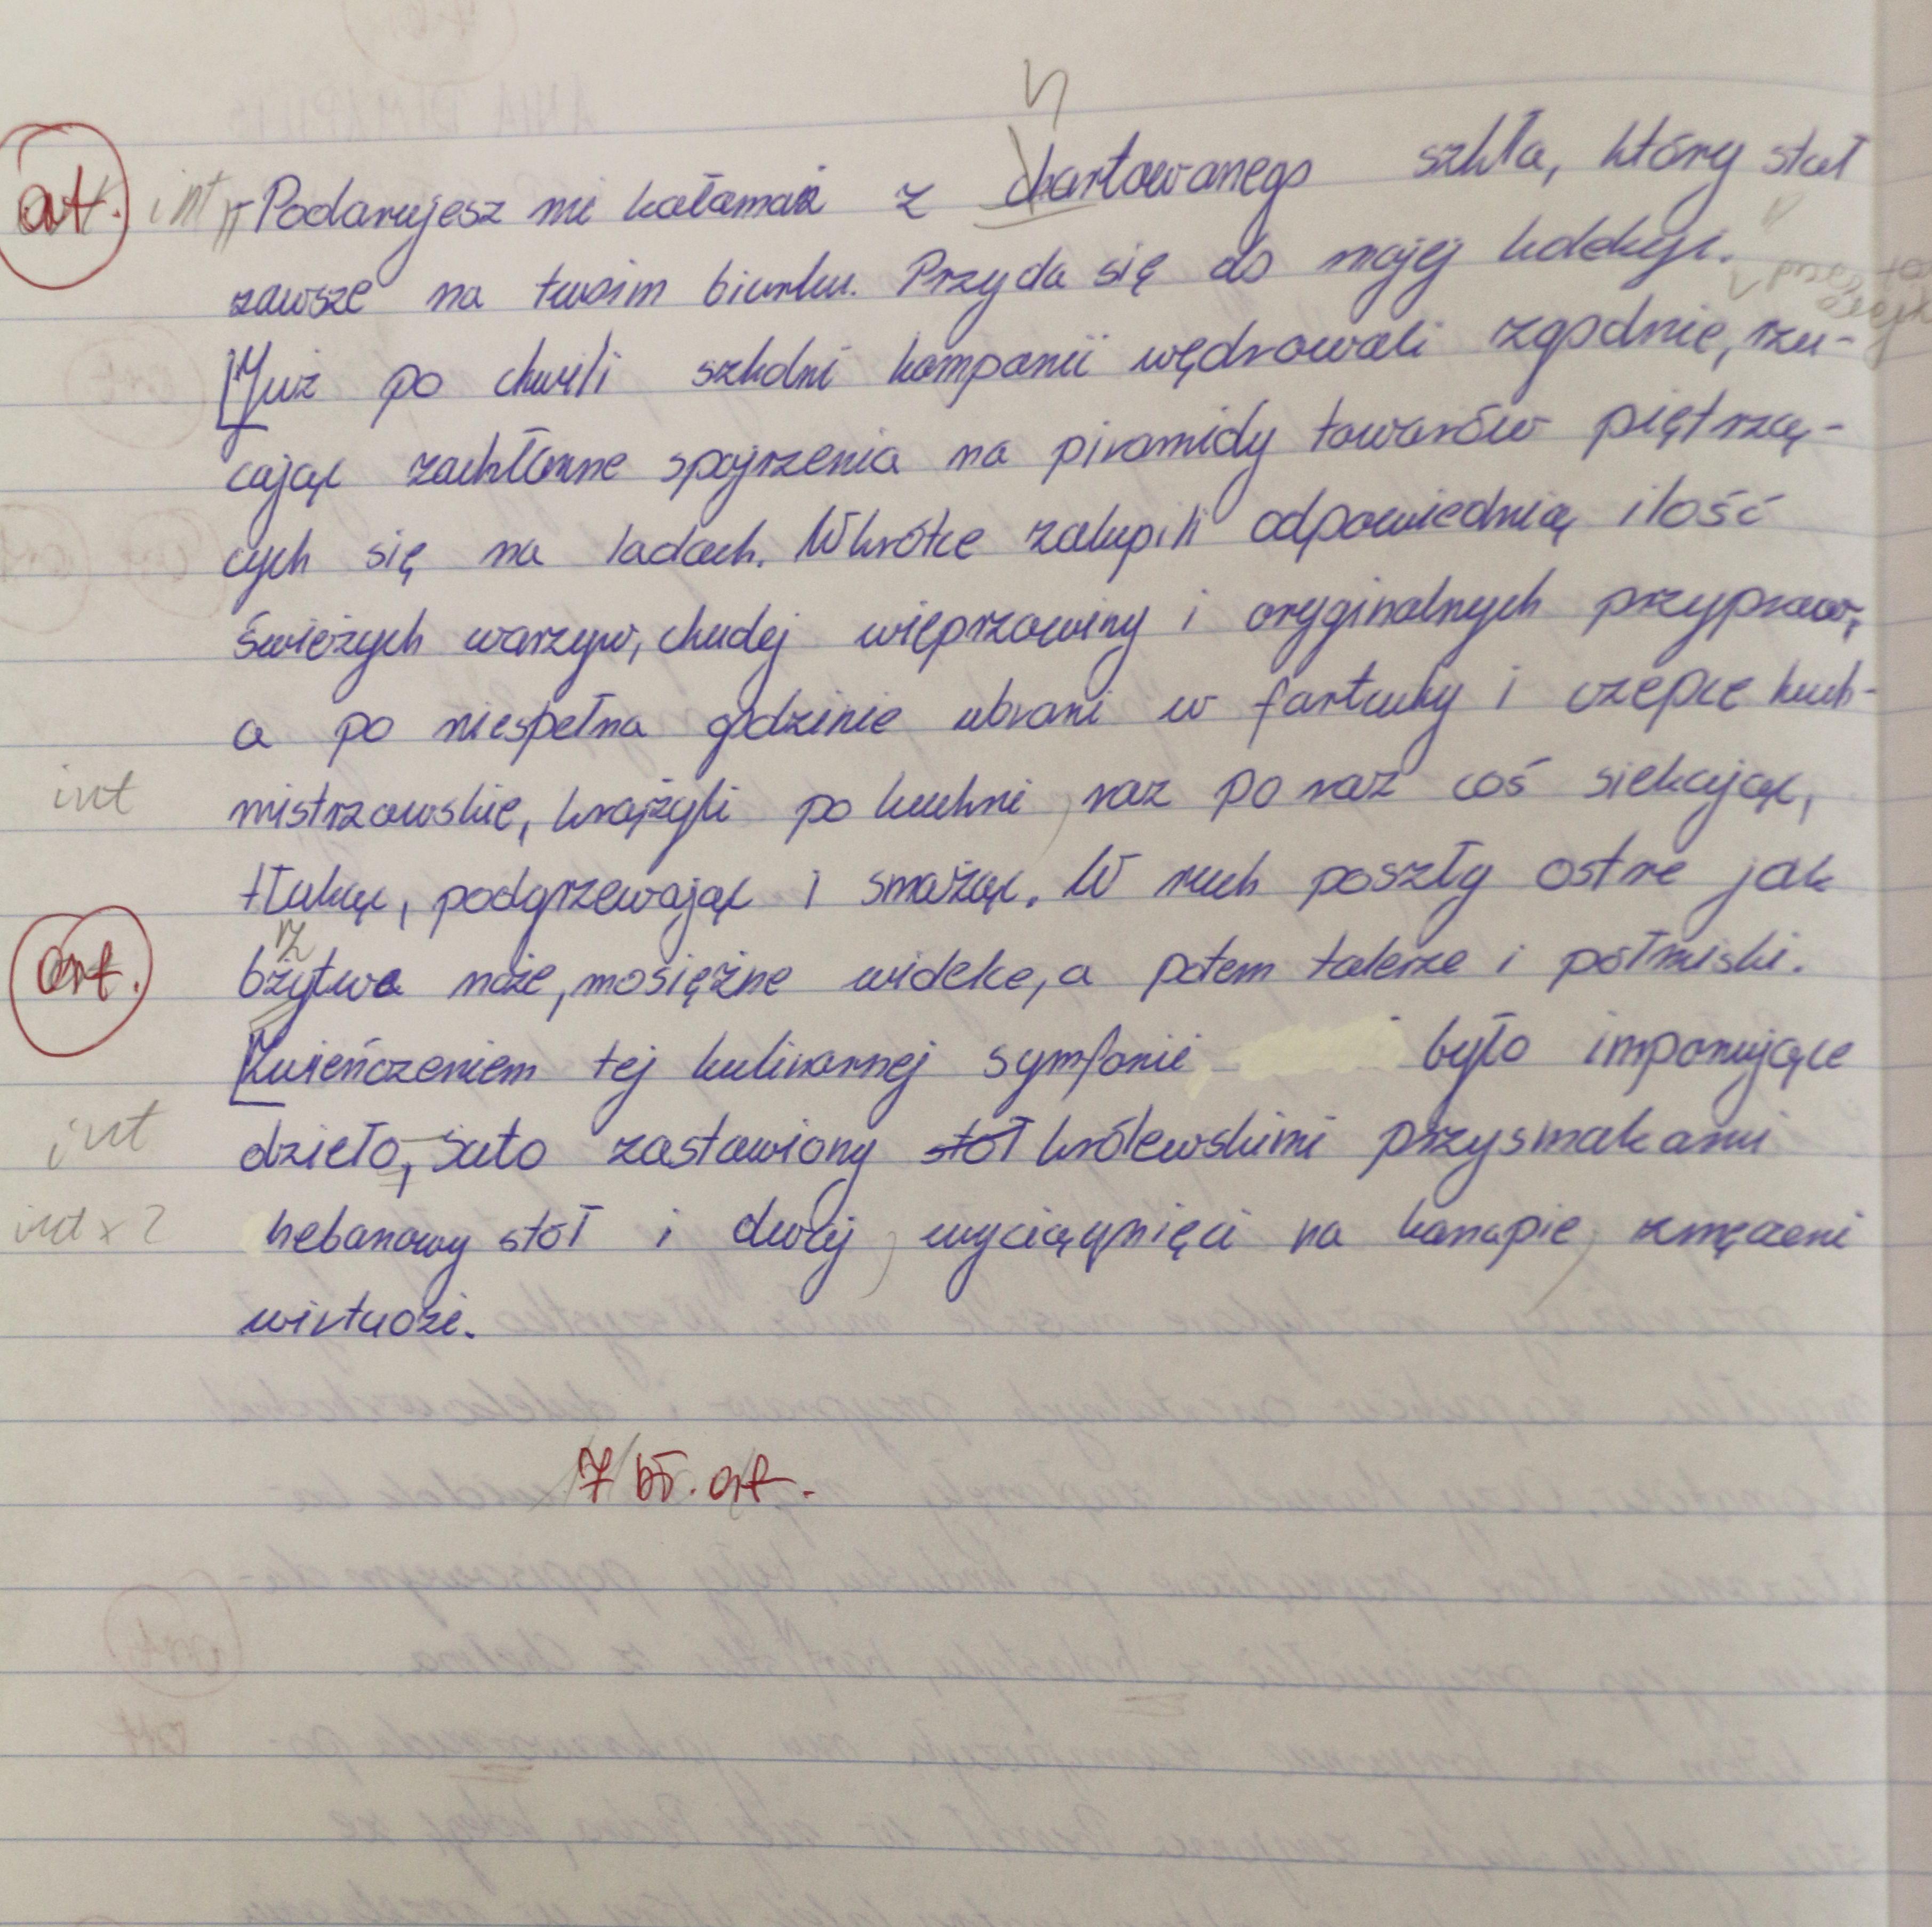 h
ort. int - Podarujesz mi kałamaż z chartowanego szkła, który stał
zawsze na twoim biurku. Przyda się do mojej kolekcji.
Już po chwili szkolni kompanii wędrowali zgodnie, rzu-
cając zachłanne spojrzenia na piramidy towarów piętrzą-
cych się na ladach. Wkrótce zakupili odpowiednią ilość
świeżych warzyw, chudej wieprzowiny i oryginalnych przypraw,
a po niespełna godzinie ubrani w fartuchy i czepce kuch-
int mistrzowskie, krążyli po kuchni, raz po raz coś siekając,
tłukąc, podgrzewając i smażąc. W ruch poszły ostre jak
rz
ort. bżytwa noże, mosiężne widelce, a potem talerze i półmiski.
Zwieńczeniem tej kulinarnej symfonii było imponujące
int dzieło, suto zastawiony stół królewskimi przysmakami
int x 2 hebanowy stół i dwaj, wyciągnięci na kanapie, zmęczeni
wirtuozi.
7 bł. ort.